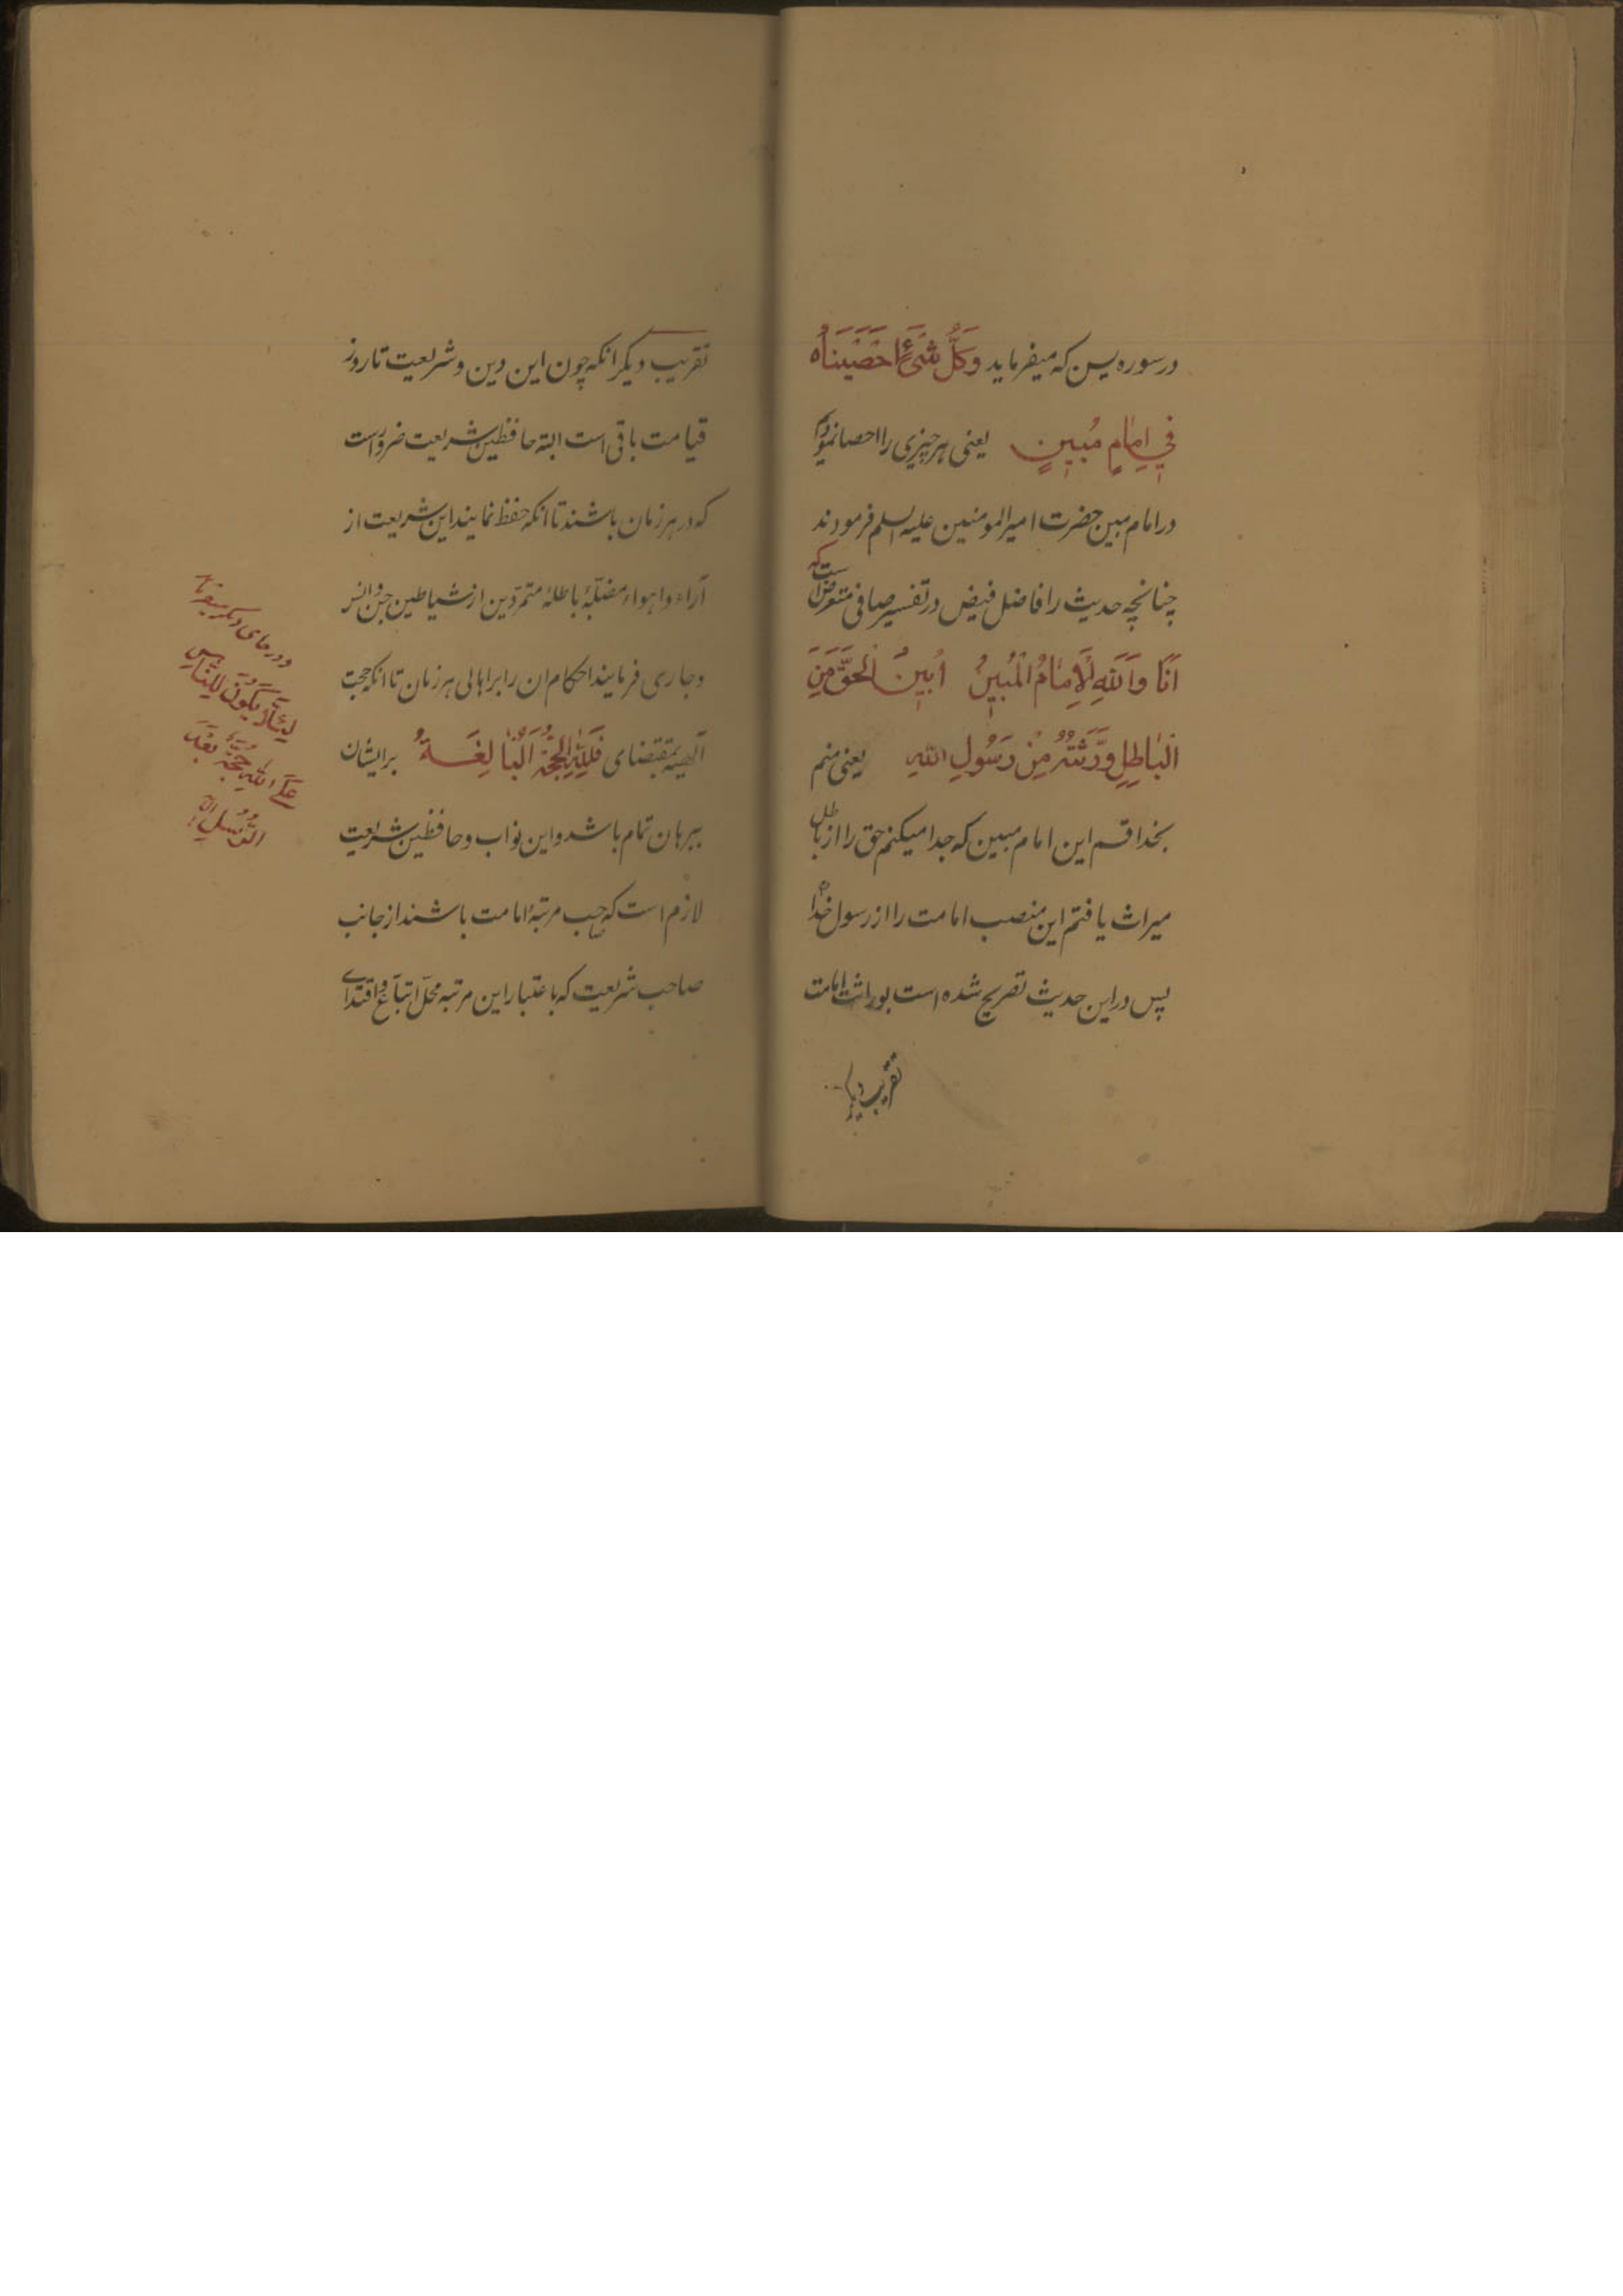 در سوره یس که میفرماید وَكُلَّ شَیْءٍ اَحْصَیْنَاهُ
فِی اِمَامٍ مُبِینٍ یعنی هر چیزی را احصا نمودیم
در امام مبین حضرت امیرالمومنین علیه السلم فرمودند
چنانچه حدیث را فاضل فیض در تفسیر صافی متعرض است که
اَنَا وَاَللهِ لَاْلاِمَامُ الْمُبِینُ اُبِینُ الْحَقَّ مِنَ
اَلْبَاطِلِ وَرَّثْتُهُ مِنْ رَسُولِ اللهِ یعنی منم
بخدا قسم این امام مبین که جدا میکنم حق را از باطل
میراث یافتم این منصب امامت را از رسول خدا ص
پس در این حدیث تصریح شده است بوراثت امامت
تقریب دیگر
تقریب دیگر انکه چون این دین و شریعت تا روز
قیامت باقی است البته حافظین شریعت ضرور است
که در هر زمان باشند تا انکه حفظ نمایند این شریعت از
آراء و اهواء مضلّهٔ باطلهٔ متمرّدین از شیاطین جن و انس
و جاری فرمایند احکام ان را بر اهالی هر زمان تا انکه حجت
آلهیه بمقتضای فَلِلّٰهِ الْحُجَّةُ اَلْبَالِغَةُ بر ایشان
ببرهان تمام باشد و این نواب و حافظین شریعت
لازم است که صاحب مرتبهٔ امامت باشند از جانب
صاحب شریعت که باعتبار این مرتبه محلّ اتباع و اقتدای
و در جای دیگر میفرماید
لِئَلَّا یَكُونَ لِلنَّاسِ
عَلَی اللهِ حُجَّةٌ بَعْدَ
الرُّسُلِ